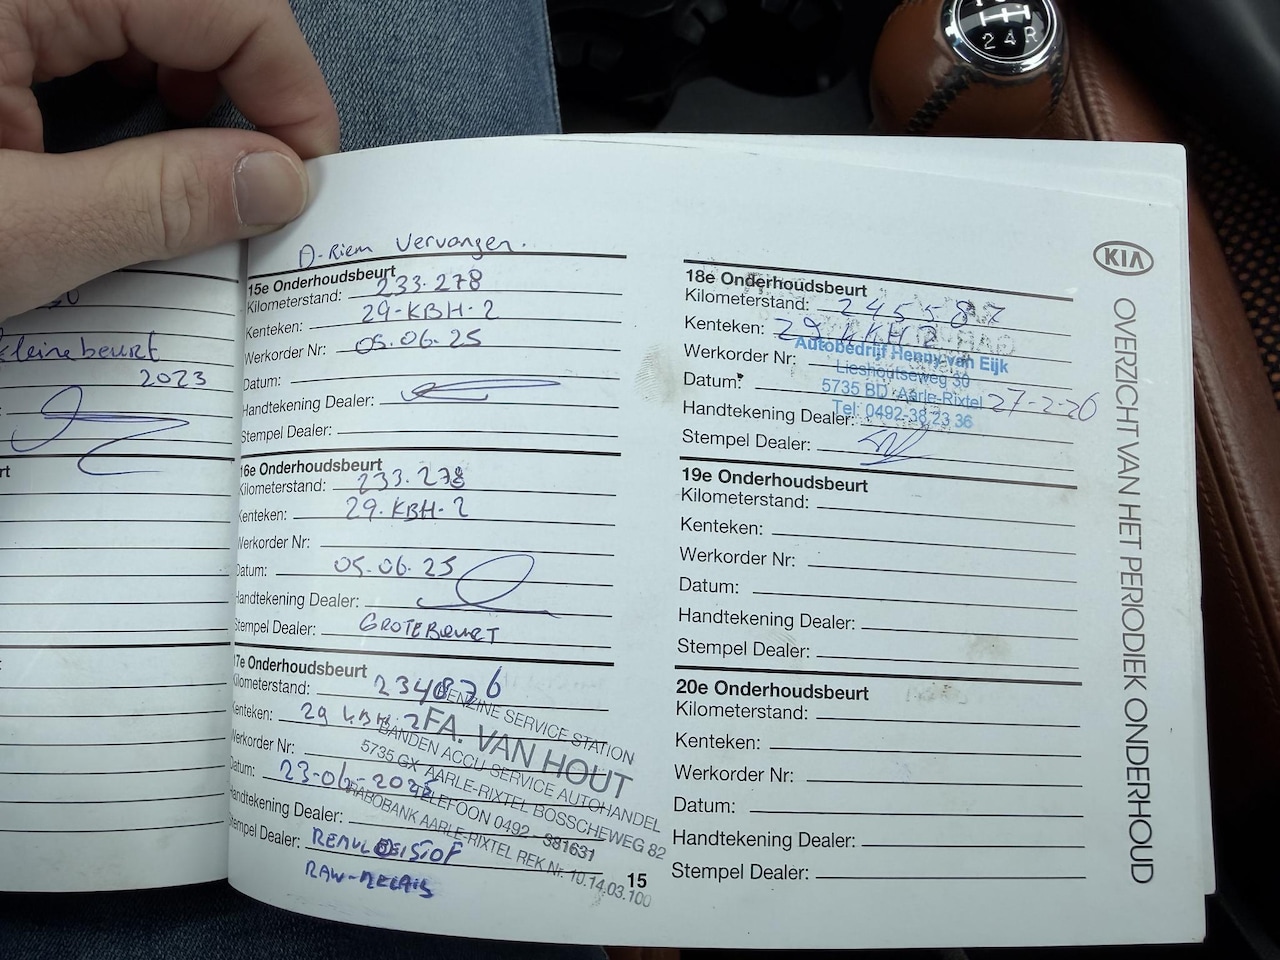 2 4 R
kleine beurt
2023
D-Riem Vervangen.
15e Onderhoudsbeurt
Kilometerstand: 233.278
Kenteken: 29-KBH-2
Werkorder Nr: 05.06.25
Datum:
Handtekening Dealer:
Stempel Dealer:
16e Onderhoudsbeurt
Kilometerstand: 233.278
Kenteken: 29.KBH-2
Werkorder Nr:
Datum: 05.06.25
Handtekening Dealer:
Stempel Dealer: GROTE BEURT
17e Onderhoudsbeurt
Kilometerstand: 234876
Kenteken: 29 KBH 2
Werkorder Nr:
Datum: 23-06-2025
Handtekening Dealer:
Stempel Dealer: REMVLOEISTOF
BENZINE SERVICE STATION
FA. VAN HOUT
BANDEN ACCU SERVICE AUTOHANDEL
5735 GX AARLE-RIXTEL BOSSCHEWEG 82
TELEFOON 0492 - 381631
RABOBANK AARLE-RIXTEL REK Nr. 10.14.03.100
15
18e Onderhoudsbeurt
Kilometerstand: 245587
Kenteken: 29 KBH 2
Werkorder Nr:
Datum: 27-2-26
Handtekening Dealer:
Stempel Dealer:
Autobedrijf Henny van Eijk
Lieshoutseweg 30
5735 BD Aarle-Rixtel
Tel: 0492-38 23 36
19e Onderhoudsbeurt
Kilometerstand:
Kenteken:
Werkorder Nr:
Datum:
Handtekening Dealer:
Stempel Dealer:
20e Onderhoudsbeurt
Kilometerstand:
Kenteken:
Werkorder Nr:
Datum:
Handtekening Dealer:
Stempel Dealer:
KIA
OVERZICHT VAN HET PERIODIEK ONDERHOUD